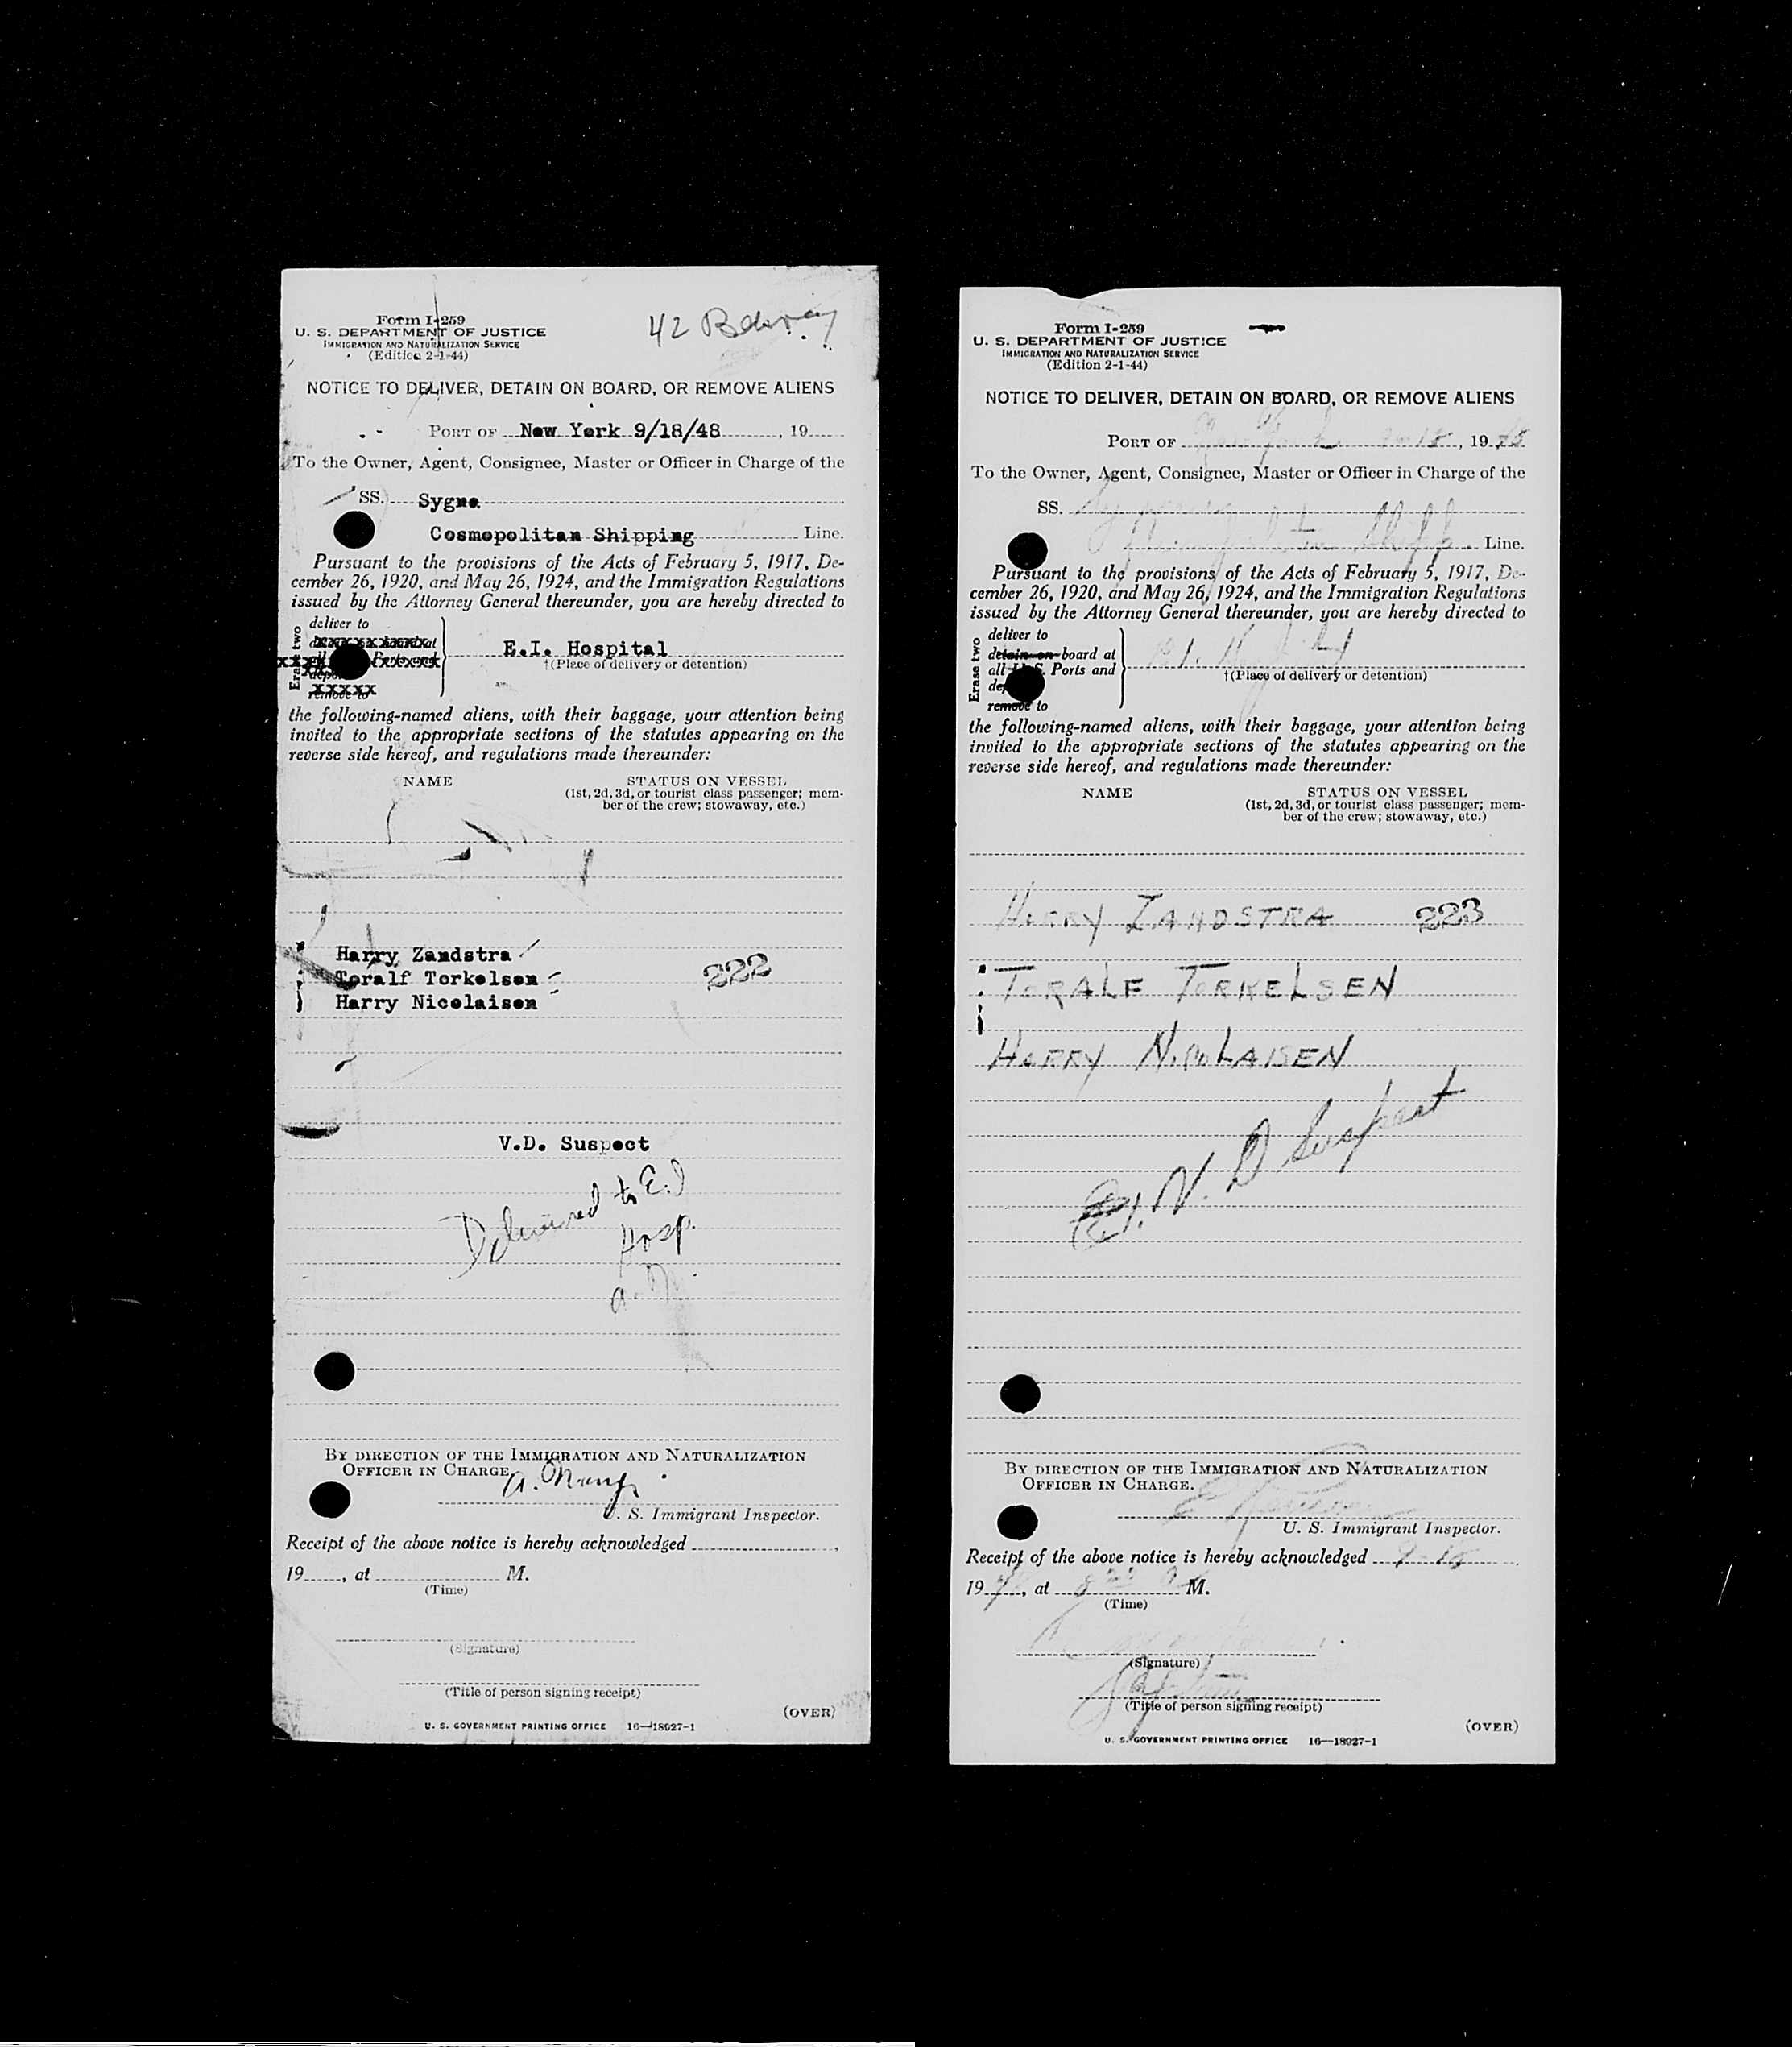 Form I-259
U. S. DEPARTMENT OF JUSTICE
IMMIGRATION AND NATURALIZATION SERVICE
(Edition 2-1-44)
42
NOTICE TO DELIVER, DETAIN ON BOARD, OR REMOVE ALIENS
PORT OF New York 9/18/48, 19
To the Owner, Agent, Consignee, Master or Officer in Charge of the
SS. Sygna
Cosmopolitan Shipping Line.
Pursuant to the provisions of the Acts of February 5, 1917, De-
cember 26, 1920, and May 26, 1924, and the Immigration Regulations
issued by the Attorney General thereunder, you are hereby directed to
Erase two
deliver to
remove to
E.I. Hospital
†(Place of delivery or detention)
the following-named aliens, with their baggage, your attention being
invited to the appropriate sections of the statutes appearing on the
reverse side hereof, and regulations made thereunder:
NAME
STATUS ON VESSEL
(1st, 2d, 3d, or tourist class passenger; mem-
ber of the crew; stowaway, etc.)
Harry Zandstra
Toralf Torkelsen 222
Harry Nicolaisen
V.D. Suspect
Delivered to E.I
Hosp.
a. M.
BY DIRECTION OF THE IMMIGRATION AND NATURALIZATION
OFFICER IN CHARGE.
U. S. Immigrant Inspector.
Receipt of the above notice is hereby acknowledged ,
19 , at M.
(Time)
(Signature)
(Title of person signing receipt)
(OVER)
U. S. GOVERNMENT PRINTING OFFICE 16—18927-1
Form I-259
U. S. DEPARTMENT OF JUSTICE
IMMIGRATION AND NATURALIZATION SERVICE
(Edition 2-1-44)
NOTICE TO DELIVER, DETAIN ON BOARD, OR REMOVE ALIENS
PORT OF New York 18, 19
To the Owner, Agent, Consignee, Master or Officer in Charge of the
SS.
Line.
Pursuant to the provisions of the Acts of February 5, 1917, De-
cember 26, 1920, and May 26, 1924, and the Immigration Regulations
issued by the Attorney General thereunder, you are hereby directed to
Erase two
deliver to
detain on board at
all U.S. Ports and
remove to
†(Place of delivery or detention)
the following-named aliens, with their baggage, your attention being
invited to the appropriate sections of the statutes appearing on the
reverse side hereof, and regulations made thereunder:
NAME
STATUS ON VESSEL
(1st, 2d, 3d, or tourist class passenger; mem-
ber of the crew; stowaway, etc.)
HARRY ZANDSTRA 223
TORALF TORKELSEN
HARRY NICOLAISEN
V. D Suspect
BY DIRECTION OF THE IMMIGRATION AND NATURALIZATION
OFFICER IN CHARGE.
U. S. Immigrant Inspector.
Receipt of the above notice is hereby acknowledged 9-18
19 , at M.
(Time)
(Signature)
(Title of person signing receipt)
(OVER)
U. S. GOVERNMENT PRINTING OFFICE 16—18927-1